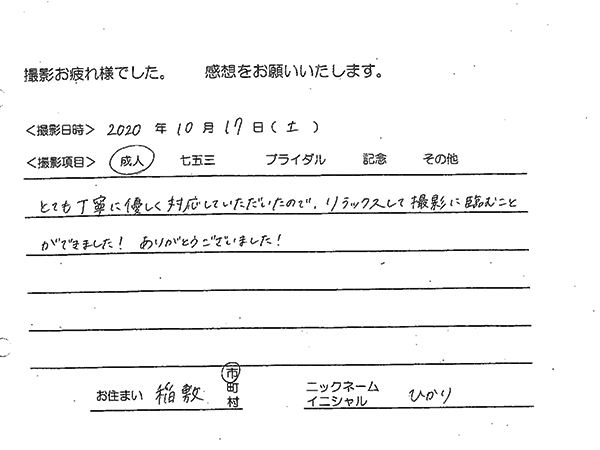 撮影お疲れ様でした。 感想をお願いいたします。
＜撮影日時＞ 2020 年 10 月 17 日（土）
＜撮影項目＞ 成人 七五三 ブライダル 記念 その他
とても丁寧に優しく対応していただいたので、リラックスして撮影に臨むこと
ができました！ ありがとうございました！
お住まい 稲敷 市 町 村 ニックネーム イニシャル ひかり